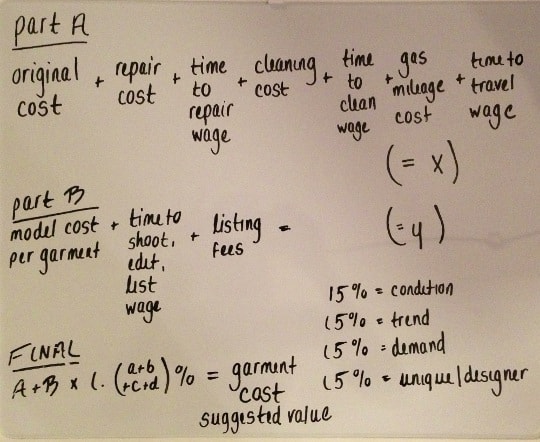 part A
original cost + repair cost + time to repair wage + cleaning cost + time to clean wage + gas mileage cost + time to travel wage
(= x)
part B
model cost per garment + time to shoot, edit, list wage + listing fees =
(= y)
15% = condition
15% = trend
15% = demand
15% = unique/designer
FINAL
A+B x 1.(a+b+c+d)% = garment cost
suggested value